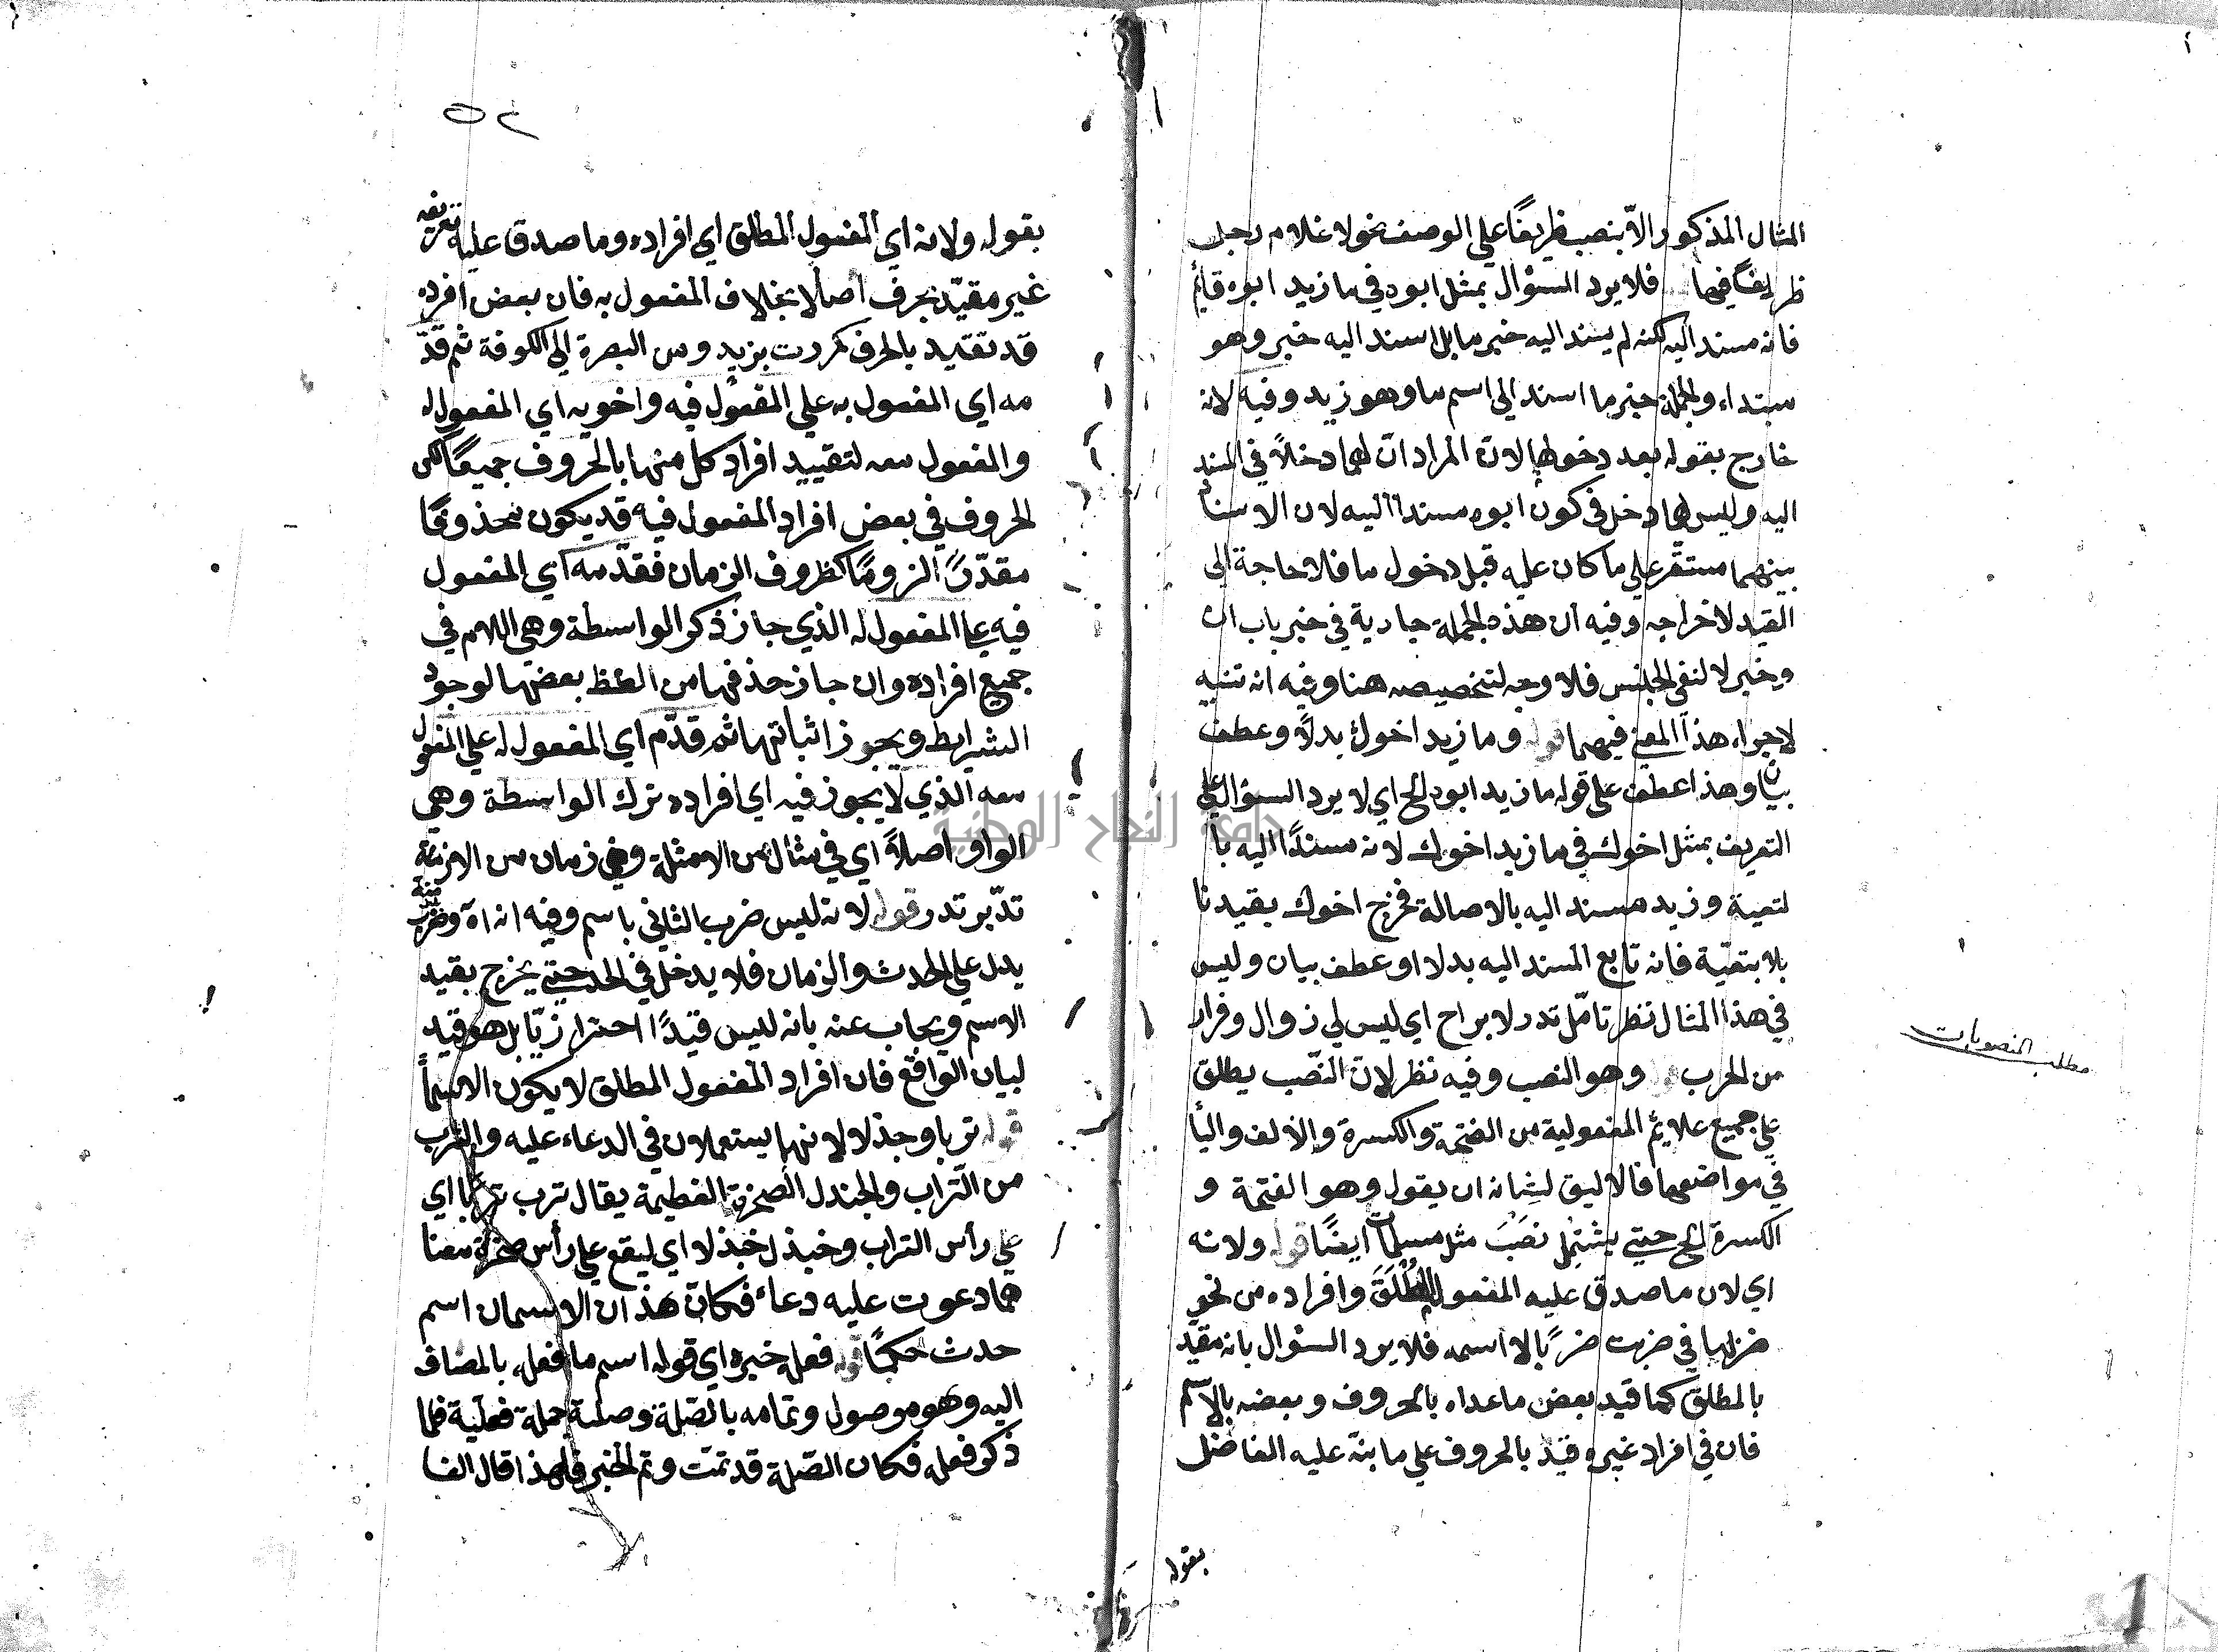 المثال المذكور والّا بنصب ظريفًا علي الوصف نحو لا غلام رجل
ظريفًا فيها فلا يرد السؤال بمثل ابوه في ما زيد ابوه قائم
فانه مسند اليه لكنه لم يسند اليه خبر ما بل اسند اليه خبر وهو
مبتداء والجملة خبر ما اسند الي اسم ما وهو زيد وفيه لانه
خارج بقوله بعد دخولها لان المراد انّ لهما دخلاً في المسند
اليه وليس لهما دخل في كون ابوه مسندا اليه لان الاسناد
بينهما مستقر علي ما كان عليه قبل دخول ما فلا حاجة الي
القيد لاخراجه وفيه ان هذه الجملة جارية في خبر باب ان
وخبر لا لنفي الجنس فلا وجه لتخصيصه هنا وفيه انه تنبيه
لاجراء هذا المعني فيهما قوله وما زيد اخوك بدلاً وعطف
بيان وهذا عطف علي قوله ما زيد ابوه الخ اي لا يرد السؤال علي
التعريف بمثل اخوك في ما زيد اخوك لانه مسندًا اليه با
لتبعية وزيد مسند اليه بالاصالة فخرج اخوك بقيدنا
بلا بتعيّة فانه تابع المسند اليه بدلا او عطف بيان وليس
في هذا المثال نظر تامّل تدر لا براح اي ليس لي زوال وفرار
من الحرب قوله وهو النصب وفيه نظر لانّ النّصب يطلق
علي جميع علايم المفعولية من الفتحة والكسرة والالف واليا
في مواضعها فالاليق لشانه ان يقول وهو الفتحة و
الكسرة الخ حتي يشتمل نصَبَ مثل مسلمات ايضًا قوله ولانه
اي لان ما صدق عليه المفعول المُطْلَقَ وافراده من نحو
ضربًا في ضربت ضربًا لا اسمه فلا يرد السؤال بانه مقيد
بالمطلق كما قيد بعض ما عداه بالحروف وبعضه بالاسم
فان في افراد غيره قيّد بالحروف علي ما بنّه عليه الفاضل
بقوله
مطلب المنصوبات
٥٢
بقوله ولانه اي المفعول المطلق اي افراده وما صدق عليه تعريفه
غير مقيّد بحرف اصلا بخلاف المفعول به فان بعض افرده
قد تقيد بالحرف كمررت بزيد ومن البصرة الي الكوفة ثم قدّ
مه اي المفعول به علي المفعول فيه واخويه اي المفعول له
والمفعول معه لتقييد افراد كل منها بالحروف جميعًا لكن
الحروف في بعض افراد المفعول فيه قد يكون محذوفًا
مقدّرًا لزومًا كظروف الزمان فقدّمه اي المفعول
فيه علي المفعول له الذي جاز ذكر الواسطة وهي اللام في
جميع افراده وان جاز حذفها من اللفظ بعضها لوجود
الشرايط ويجوز اثباتها ثم قدّم اي المفعول له علي المفعول
معه الذي لا يجوز فيه اي افراده ترك الواسطة وهي
الواو اصلاً اي في مثال من الامثلة وفي زمان من الازمنة
تدّبر تدر قوله لانه ليس ضرب الثاني باسم وفيه انه اه وضرب
يدل علي الحدث والزمان فلا يدخل في الحدّ حتي يخرج بقيد
الاسم ويجاب عنه بانه ليس قيدًا احترازيّا بل هو قيد
لبيان الواقع فان افراد المفعول المطلق لا يكون الا اسمًا
قوله تربا وجندلا لانهما يستعملان في الدعاء عليه والترب
من التّراب والجندل الصخرة العظيمة يقال ترب تربًا اي
علي رأس التراب وخبذل خبذلا اي ليقع علي رأس صخرة معنا
هما دعوت عليه دعاء فكانّ هذان الاسمان اسم
حدث حكمًا قوله فعله خبره اي قوله اسم ما فعله بالمضاف
اليه وهو موصول وتمامه بالصّلة وصلته جملة فعليّة فلما
ذكر فعله فكان الصّلة قد تمّت وتم الخبر فلهذا قال الفا
جامعة النجاح الوطنية